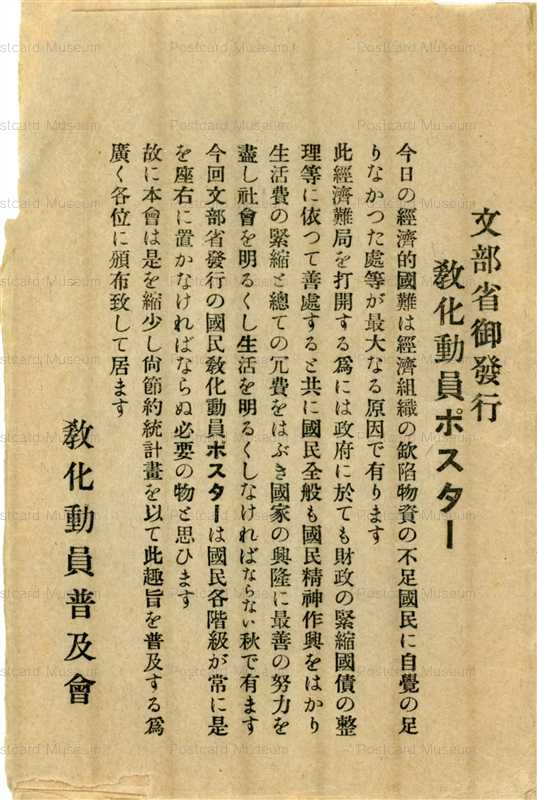 文部省御發行
敎化動員ポスター
今日の經濟的國難は經濟組織の缺陷物資の不足國民に自覺の足
りなかつた處等が最大なる原因で有ります
此經濟難局を打開する爲には政府に於ても財政の緊縮國債の整
理等に依つて善處すると共に國民全般も國民精神作興をはかり
生活費の緊縮と總ての冗費をはぶき國家の興隆に最善の努力を
盡し社會を明るくし生活を明るくしなければならない秋で有ます
今回文部省發行の國民敎化動員ポスターは國民各階級が常に是
を座右に置かなければならぬ必要の物と思ひます
故に本會は是を縮少し尙節約統計畫を以て此趣旨を普及する爲
廣く各位に頒布致して居ます
敎化動員普及會
Postcard Museum